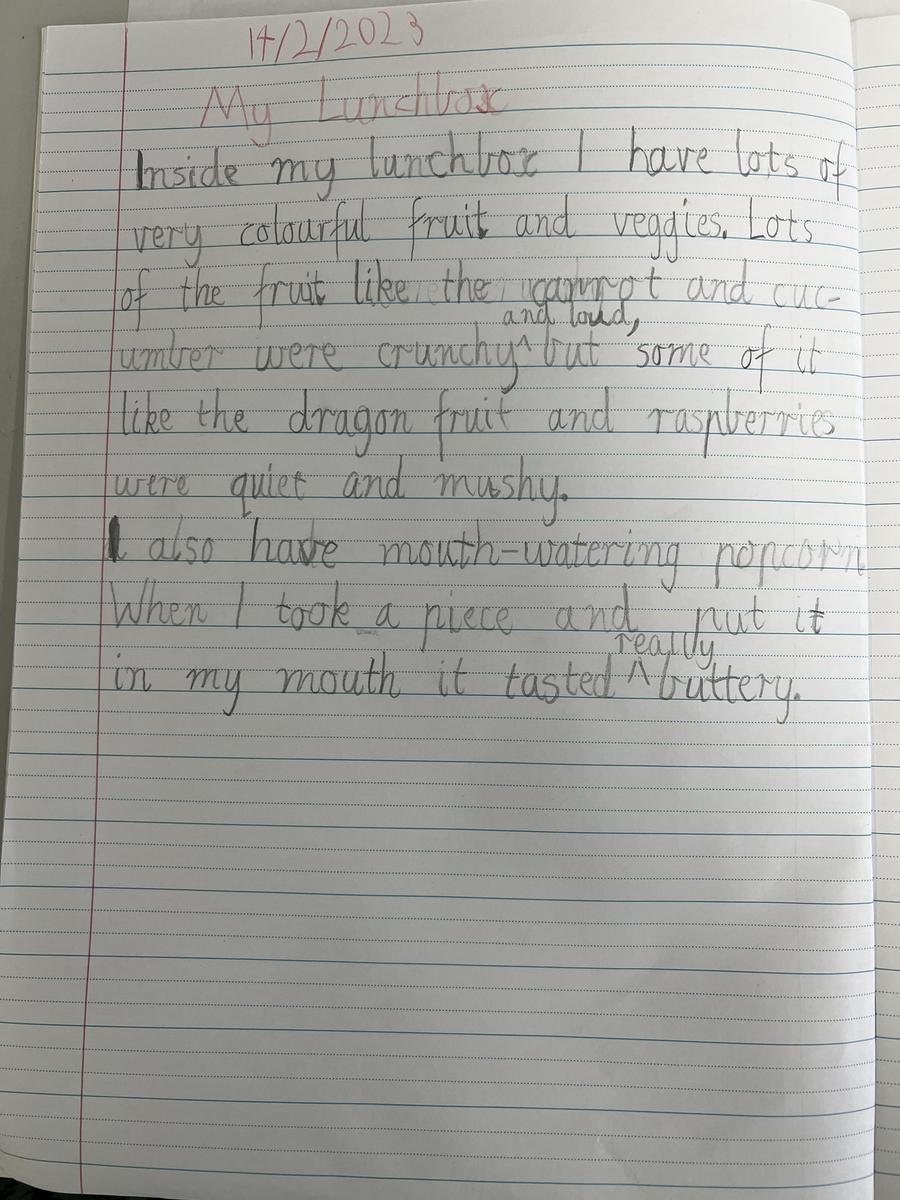 14/2/2023
My Lunchbox
Inside my lunchbox I have lots of
very colourful fruit and veggies. Lots
of the fruit like the carrot and cuc-
and loud,
umber were crunchy^ but some of it
like the dragon fruit and raspberries
were quiet and mushy.
I also have mouth-watering popcorn
When I took a piece and put it
really
in my mouth it tasted ^ buttery.